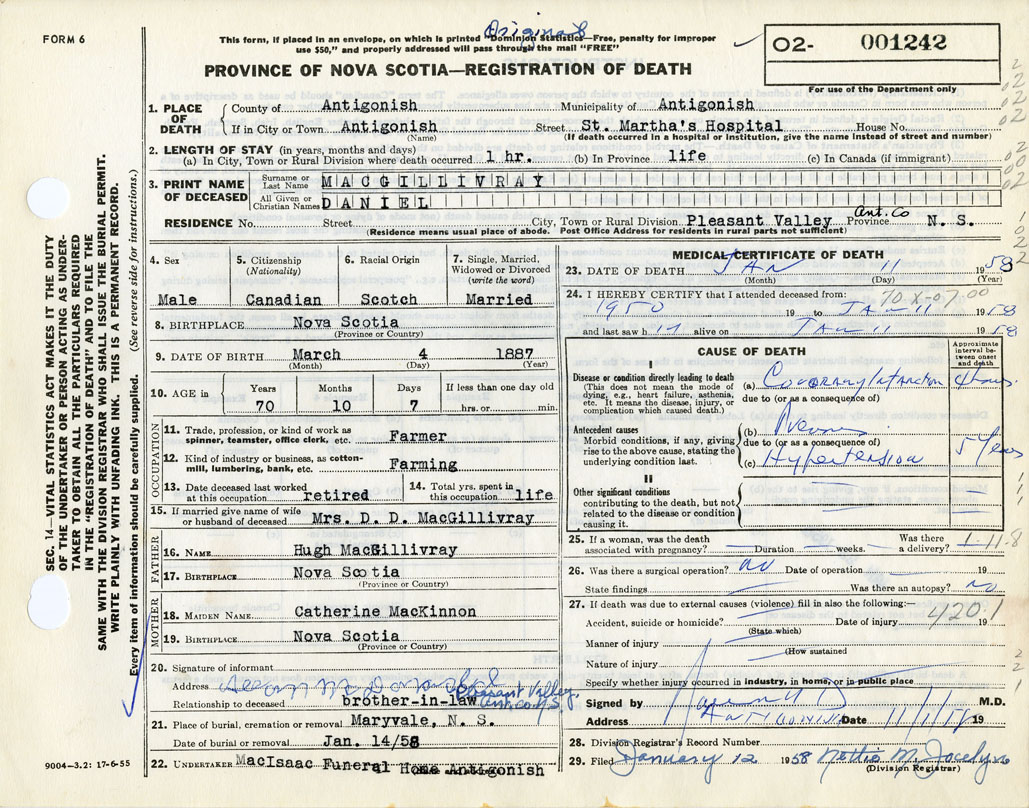 FORM 6
Original
This form, if placed in an envelope, on which is printed "Dominion Statistics—Free, penalty for improper
use $50," and properly addressed will pass through the mail "FREE"
O2- 001242
For use of the Department only
PROVINCE OF NOVA SCOTIA—REGISTRATION OF DEATH
1. PLACE OF DEATH
County of Antigonish Municipality of Antigonish
If in City or Town Antigonish Street St. Martha's Hospital House No.
(Name) (If death occurred in a hospital or institution, give the name instead of street and number)
2. LENGTH OF STAY (in years, months and days)
(a) In City, Town or Rural Division where death occurred 1 hr. (b) In Province life (c) In Canada (if immigrant)
3. PRINT NAME OF DECEASED
Surname or Last Name MACGILLIVRAY
All Given or Christian Names DANIEL
RESIDENCE No. Street City, Town or Rural Division Pleasant Valley Ant. Co Province N. S.
(Residence means usual place of abode. Post Office Address for residents in rural parts not sufficient)
4. Sex
Male
5. Citizenship
(Nationality)
Canadian
6. Racial Origin
Scotch
7. Single, Married,
Widowed or Divorced
(write the word)
Married
8. BIRTHPLACE Nova Scotia
(Province or Country)
9. DATE OF BIRTH March 4 1887
(Month) (Day) (Year)
10. AGE in
Years Months Days If less than one day old
70 10 7 hrs. or min.
OCCUPATION
11. Trade, profession, or kind of work as
spinner, teamster, office clerk, etc. Farmer
12. Kind of industry or business, as cotton-
mill, lumbering, bank, etc. Farming
13. Date deceased last worked
at this occupation retired
14. Total yrs. spent in
this occupation life
15. If married give name of wife
or husband of deceased Mrs. D. D. MacGillivray
FATHER
16. NAME Hugh MacGillivray
17. BIRTHPLACE Nova Scotia
(Province or Country)
MOTHER
18. MAIDEN NAME Catherine MacKinnon
19. BIRTHPLACE Nova Scotia
(Province or Country)
20. Signature of informant
Address Pleasant Valley,
Relationship to deceased brother-in-law
21. Place of burial, cremation or removal Maryvale, N. S.
Date of burial or removal Jan. 14/58
22. UNDERTAKER MacIsaac Funeral Home Antigonish
MEDICAL CERTIFICATE OF DEATH
23. DATE OF DEATH JAN 11 1958
(Month) (Day) (Year)
24. I HEREBY CERTIFY that I attended deceased from:
70 X-07.00
1950 19 to JAN 11 1958
and last saw alive on JAN 11 1958
CAUSE OF DEATH
Approximate
interval be-
tween onset
and death
I
Disease or condition directly leading to death
(This does not mean the mode of
dying, e.g., heart failure, asthenia,
etc. It means the disease, injury, or
complication which caused death.)
(a) Coronary Infarction 4 hours
due to (or as a consequence of)
Antecedent causes
Morbid conditions, if any, giving
rise to the above cause, stating the
underlying condition last.
(b)
due to (or as a consequence of)
(c) Hypertension 5 Years
II
Other significant conditions
contributing to the death, but not
related to the disease or condition
causing it.
25. If a woman, was the death
associated with pregnancy? Duration weeks. Was there
a delivery?
1-11-8
26. Was there a surgical operation? NO Date of operation 19
State findings Was there an autopsy? No
27. If death was due to external causes (violence) fill in also the following:—
4201
Accident, suicide or homicide? Date of injury 19
(State which)
Manner of injury
(How sustained
Nature of injury
Specify whether injury occurred in industry, in home, or in public place
Signed by M.D.
Address ANTIGONISH Date 11/1/58 19
28. Division Registrar's Record Number
29. Filed January 12 1958 Nettie M. Jocelyn
(Division Registrar)
SEC. 14—VITAL STATISTICS ACT MAKES IT THE DUTY
OF THE UNDERTAKER OR PERSON ACTING AS UNDER-
TAKER TO OBTAIN ALL THE PARTICULARS REQUIRED
IN THE "REGISTRATION OF DEATH" AND TO FILE THE
SAME WITH THE DIVISION REGISTRAR WHO SHALL ISSUE THE BURIAL PERMIT.
WRITE PLAINLY WITH UNFADING INK. THIS IS A PERMANENT RECORD.
Every item of information should be carefully supplied. (See reverse side for instructions.)
9004-3.2: 17-6-55